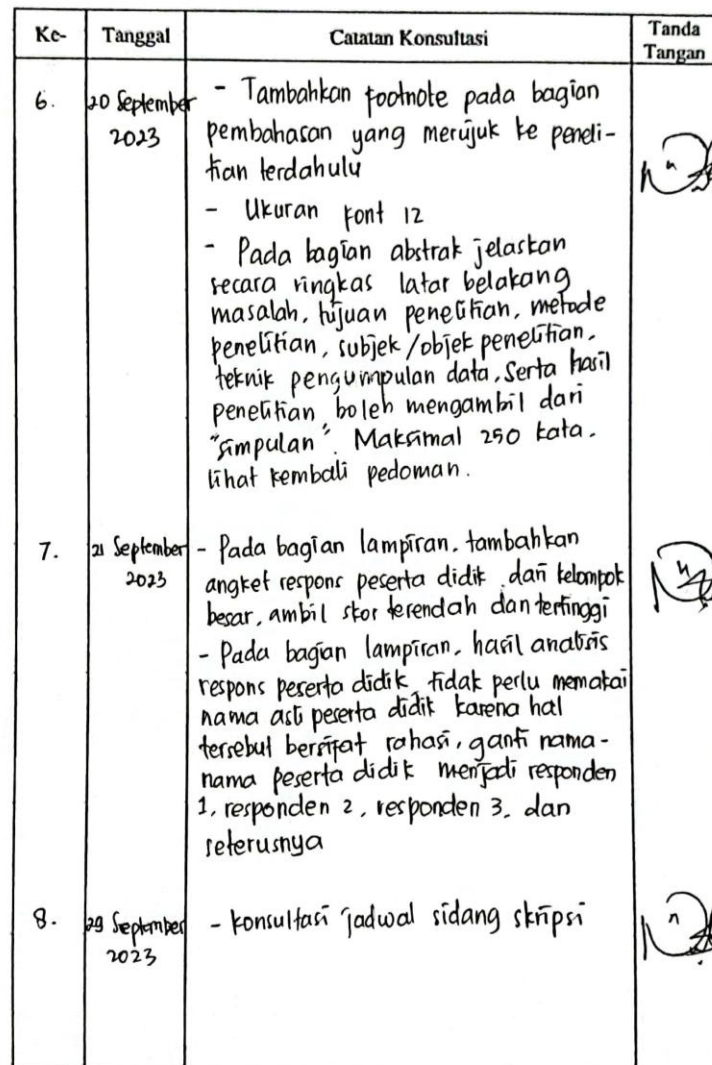 Ke- Tanggal Catatan Konsultasi Tanda Tangan
6. 20 September 2023
- Tambahkan footnote pada bagian
pembahasan yang merujuk ke peneli-
tian terdahulu
- Ukuran font 12
- Pada bagian abstrak jelaskan
secara ringkas latar belakang
masalah, tujuan penelitian, metode
penelitian, subjek/objek penelitian,
teknik pengumpulan data, Serta hasil
penelitian boleh mengambil dari
"simpulan". Maksimal 250 kata.
lihat kembali pedoman.
7. 21 September 2023
- Pada bagian lampiran, tambahkan
angket respons peserta didik dari kelompok
besar, ambil skor terendah dan tertinggi
- Pada bagian lampiran, hasil analisis
respons peserta didik, tidak perlu memakai
nama asli peserta didik karena hal
tersebut bersifat rahasi, ganti nama-
nama peserta didik menjadi responden
1, responden 2, responden 3, dan
seterusnya
8. 29 September 2023
- konsultasi jadwal sidang skripsi